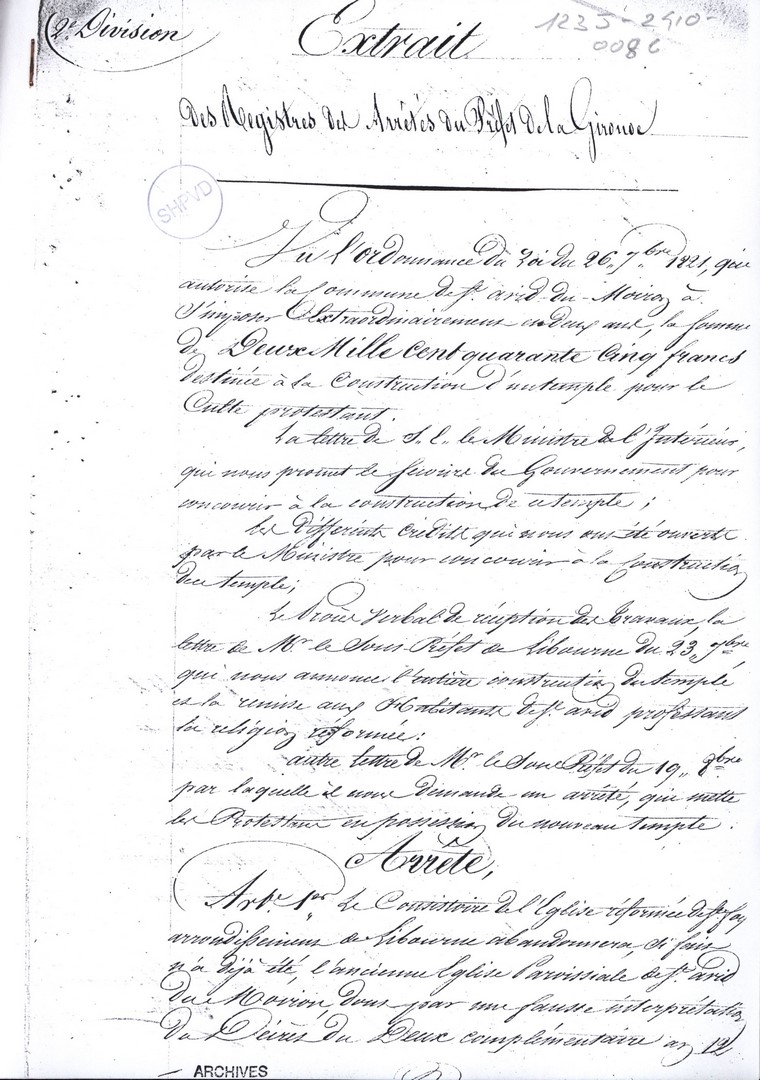 2e Division
Extrait
1235-2410-
008 C
Des Registres des Arrêtés du Préfet de la Gironde
SHPVD
Vu l'ordonnance du Roi du 26. 7bre 1821, qui
autorise la Commune de St. avid-du-Moiron à
S'imposer Extraordinairement en deux ans, la somme
de Deux Mille Cent quarante Cinq francs
destinée à la Construction d'un temple pour le
Culte protestant.
La lettre de S. E. le Ministre de l'Intérieur,
qui nous promet le secours du Gouvernement pour
concourir à la construction de ce temple ;
Les différents crédits qui nous ont été ouverts
par le Ministre pour concourir à la Construction
du temple ;
Le Procès Verbal de réception des travaux, la
lettre de Mr. le Sous Préfet de Libourne du 23. 7bre
qui nous annonce l'entière construction du temple
et la remise aux Habitants de St. avid professant
la religion réformée :
autre lettre de Mr. le Sous Préfet du 19. 8bre
par laquelle il nous demande un arrêté, qui mette
les Protestans en possession du nouveau temple :
Arrête,
Art. 1er Le Consistoire de l'Eglise réformée de Ste foy
arrondissement de Libourne abandonnera, si fait
n'a déjà été, l'ancienne Eglise Paroissiale de St. avid
du Moiron, dont par une fausse interprétation
du Décret du Deux complémentaire an 12
ARCHIVES